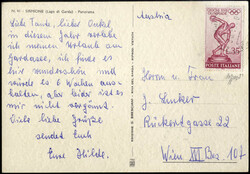 N. 15 - GARGNANO (Lago di Garda) - Panorama
Liebe Tante, lieber Onkel
in diesem Jahr verlebe
ich meinen Urlaub am
Gardasee, ich finde es
hier wunderschön und
würde es 6 Wochen aus-
halten, aber leider ist es
mir nicht vergönnt.
Viele liebe Grüße
sendet Euch
Eure Hilde.
Austria
POSTE ITALIANE
Herrn u. Frau
J. Lucker
Rückertgasse 22
Wien XVI Bez. 107